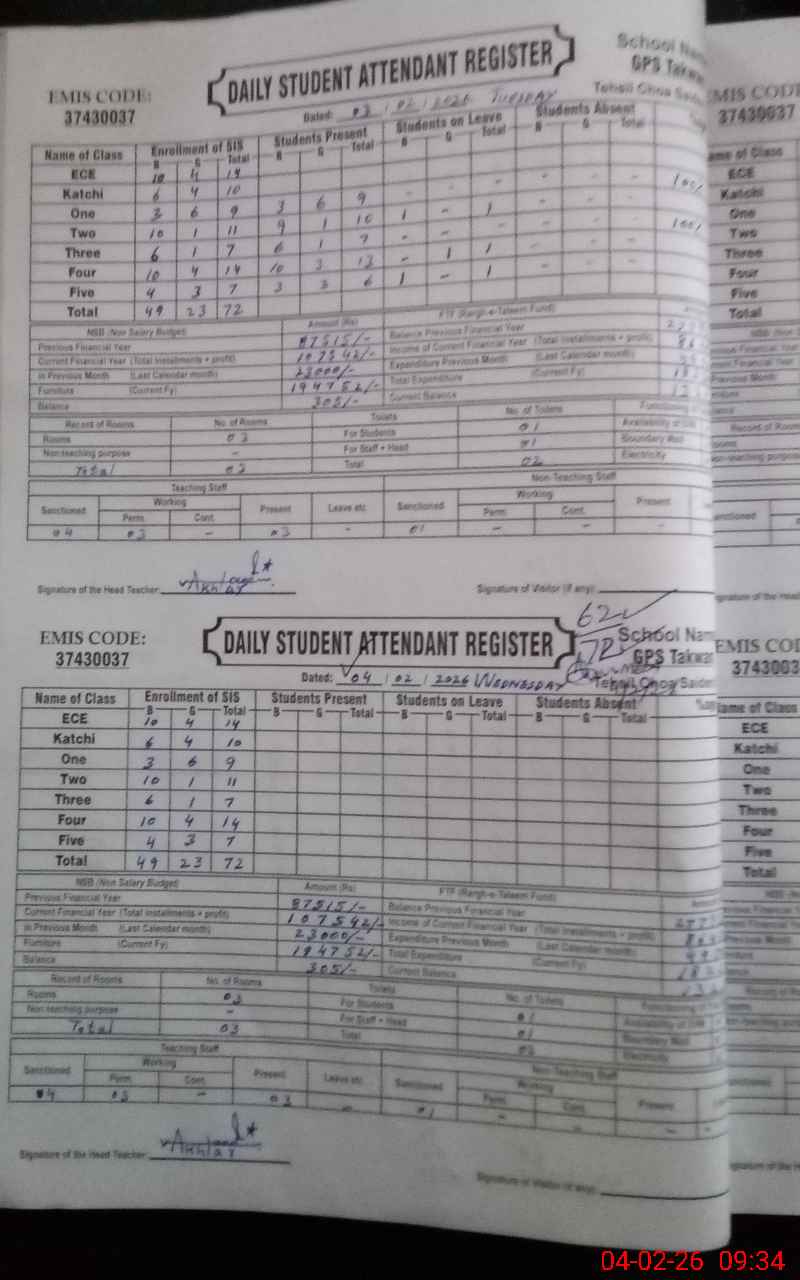 DAILY STUDENT ATTENDANT REGISTER
School Nam
GPS Takwa
Tehsil Choa Saide
EMIS CODE:
37430037
Dated: 03 / 02 / 2026 TUESDAY
Name of Class Enrollment of SIS Students Present Students on Leave Students Absent
B G Total B G Total B G Total B G Total
ECE 10 4 14
Katchi 6 4 10
One 3 6 9 3 6 9 - - - - - 100%
Two 10 1 11 9 1 10 1 - 1 - - -
Three 6 1 7 6 1 7 - - - - - 100%
Four 10 4 14 10 3 13 - 1 1 - - -
Five 4 3 7 3 3 6 1 - 1 - - -
Total 49 23 72
NSB (Non Salary Budget) Amount (Rs) FTF (Rargh-e-Taleem Fund)
Previous Financial Year 87515/- Balance Previous Financial Year
Current Financial Year (Total Installments + profit) 107542/- Income of Current Financial Year (Total Installments + profit)
in Previous Month (Last Calendar month) 23000/- Expenditure Previous Month (Last Calendar month)
Furniture (Current Fy) 194752/- Total Expenditure (Current Fy)
Balance 305/- Current Balance
Record of Rooms No. of Rooms Toilets No. of Toilets
Rooms 03 For Students 01
Non-teaching purpose - For Staff + Head 01 Boundary Wall
Total 03 Total 02 Electricity
Teaching Staff Non-Teaching Staff
Sanctioned Working Present Leave etc Sanctioned Working Present
Perm. Cont. Perm Cont.
04 03 - 03 - 01 - - -
Signature of the Head Teacher: Akhtar
Signature of Visitor (if any):
62
EMIS CODE:
37430037
DAILY STUDENT ATTENDANT REGISTER
School Nam
GPS Takwa
Tehsil Choa Saide
Dated: 04 / 02 / 2026 WEDNESDAY
Name of Class Enrollment of SIS Students Present Students on Leave Students Absent
B G Total B G Total B G Total B G Total
ECE 10 4 14
Katchi 6 4 10
One 3 6 9
Two 10 1 11
Three 6 1 7
Four 10 4 14
Five 4 3 7
Total 49 23 72
NSB (Non Salary Budget) Amount (Rs) FTF (Rargh-e-Taleem Fund)
Previous Financial Year 87515/- Balance Previous Financial Year
Current Financial Year (Total Installments + profit) 107542/- Income of Current Financial Year (Total Installments + profit)
in Previous Month (Last Calendar month) 23000/- Expenditure Previous Month (Last Calendar month)
Furniture (Current Fy) 194752/- Total Expenditure (Current Fy)
Balance 305/- Current Balance
Record of Rooms No. of Rooms Toilets No. of Toilets
Rooms 03 For Students 01
Non-teaching purpose - For Staff + Head 01 Boundary Wall
Total 03 Total 02 Electricity
Teaching Staff Non-Teaching Staff
Sanctioned Working Present Leave etc Sanctioned Working Present
Perm. Cont. Perm Cont.
04 03 - 03 - 01 - - -
Signature of the Head Teacher: Akhtar
Signature of Visitor (if any):
EMIS COD
37430037
ame of Class
ECE
Katchi
One
Two
Three
Four
Five
Total
EMIS COD
3743003
ame of Class
ECE
Katchi
One
Two
Three
Four
Five
Total
04-02-26 09:34